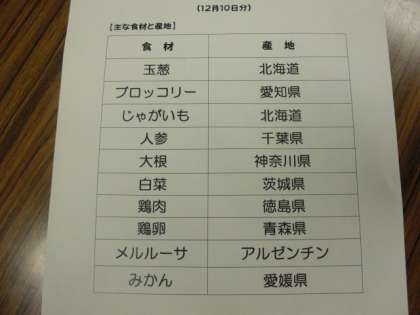 (12月10日分)
【主な食材と産地】
食材 産地
玉葱 北海道
ブロッコリー 愛知県
じゃがいも 北海道
人参 千葉県
大根 神奈川県
白菜 茨城県
鶏肉 徳島県
鶏卵 青森県
メルルーサ アルゼンチン
みかん 愛媛県